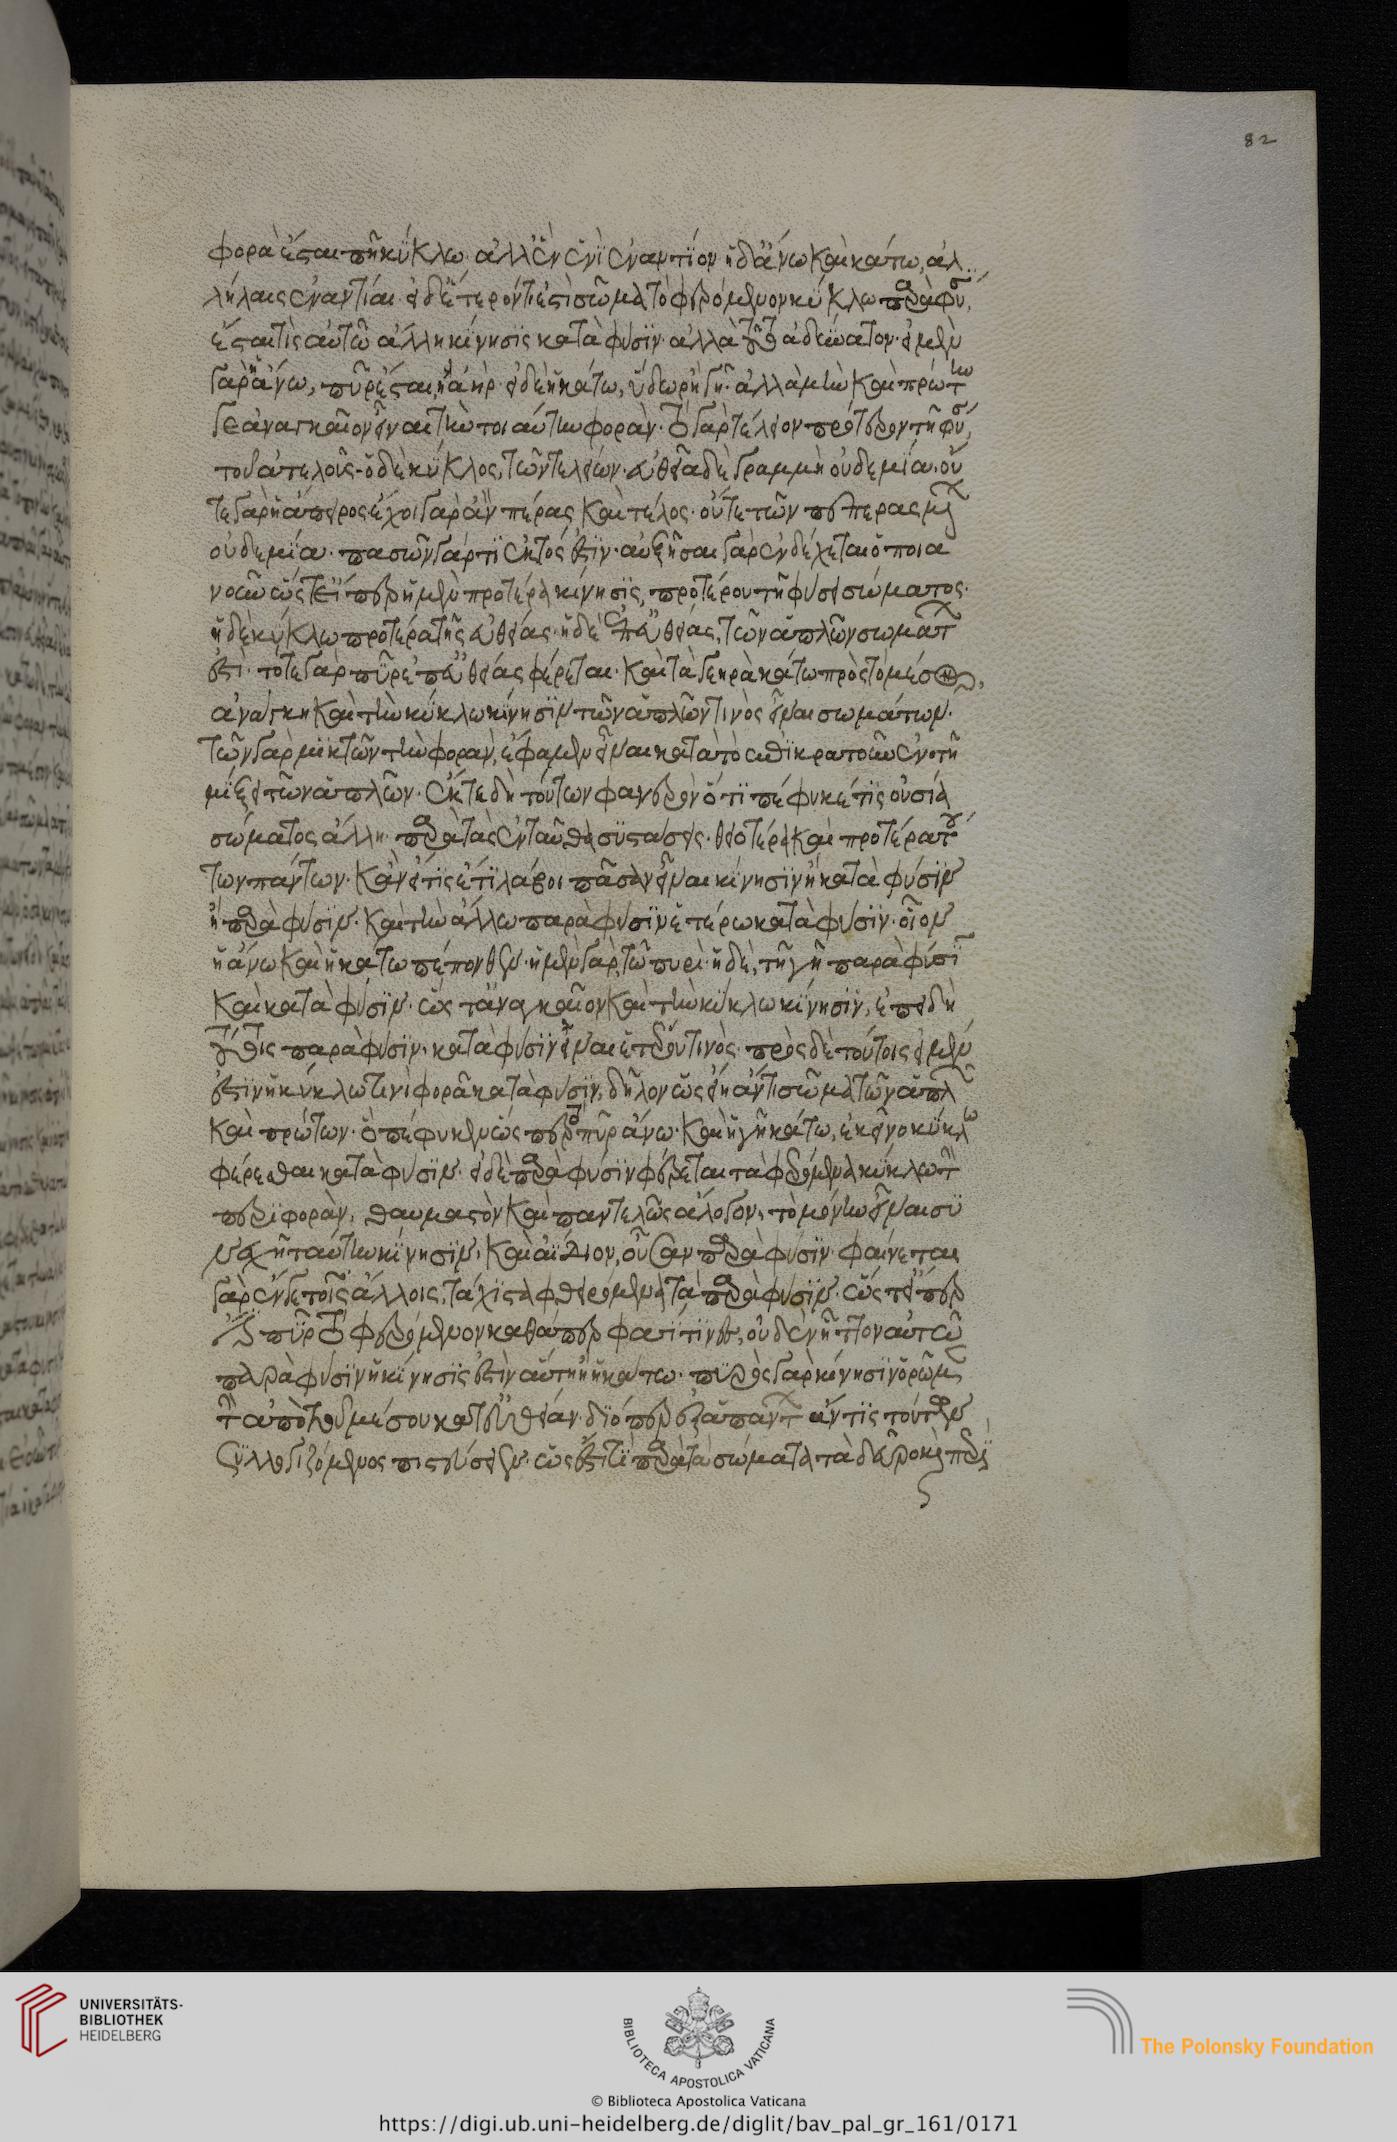 φορὰ ἔσται τῆ κύκλω· ἀλλ' ἓν ἑνὶ ἐναντίον· ἡ δ' ἄνω καὶ κάτω, ἀλ
λήλαις ἐναντίαι· εἰ δ' ἕτερόν τι ἐστὶ σῶμα τὸ φερόμενον κύκλω παρὰ φύσιν,
ἔσται τὶς αὐτοῦ ἄλλη κίνησις κατὰ φύσιν· ἀλλὰ τοῦτο ἀδύνατον· εἰ μὲν
γὰρ ἡ ἄνω, πῦρ ἔσται, ἢ ἀήρ· εἰ δὲ ἡ κάτω, ὕδωρ ἢ γῆ· ἀλλὰ μὴν καὶ πρώτην
γε ἀναγκαῖον εἶναι τὴν τοιαύτην φοράν· τὸ γὰρ τέλειον πρότερον τῆ φύσει,
τοῦ ἀτελοῦς· ὁ δὲ κύκλος, τῶν τελείων· εὐθεῖα δὲ γραμμὴ οὐδεμία· οὔ
τε γὰρ ἡ ἄπειρος ἔχοι γὰρ ἂν πέρας καὶ τέλος· οὔτε τῶν πεπερασμένων
οὐδεμία· πασῶν γάρ τι ἐκτός ἐστιν· αὐξῆσαι γὰρ ἐνδέχεται ὁποια
νοῦν ὥστ' εἴπερ ἡ μὲν προτέρα κίνησις, προτέρου τῆ φύσει σώματος·
ἡ δὲ κύκλω προτέρα τῆς εὐθείας· ἡ δὲ ἐπ' εὐθείας, τῶν ἁπλῶν σωμάτων
ἐστί· τό τε γὰρ πῦρ ἐπ' εὐθείας φέρεται· καὶ τὰ γεηρὰ κάτω πρὸς τὸ μέσον,
ἀνάγκη καὶ τὴν κύκλω κίνησιν τῶν ἁπλῶν τινὸς εἶναι σωμάτων·
τῶν γὰρ μικτῶν τὴν φορὰν, ἔφαμεν εἶναι κατὰ τὸ ἐπικρατοῦν ἐν τῆ
μίξει τῶν ἁπλῶν· ἔκ τε δὴ τούτων φανερὸν ὅτι πέφυκέ τις οὐσία
σώματος ἄλλη παρὰ τὰς ἐνταῦθα συστάσεις· θειοτέρα καὶ προτέρα τού
των πάντων· κἂν εἴ τις ἔτι λάβοι πᾶσαν εἶναι κίνησιν ἢ κατὰ φύσιν
ἢ παρὰ φύσιν· καὶ τὴν ἄλλω παρὰ φύσιν ἑτέρω κατὰ φύσιν· οἷον
ἡ ἄνω καὶ ἡ κάτω πέπονθεν· ἡ μὲν γὰρ, τῶ πυρὶ· ἡ δὲ, τῆ γῆ παρὰ φύσιν
καὶ κατὰ φύσιν· ὥστ' ἀναγκαῖον καὶ τὴν κύκλω κίνησιν, ἐπειδὴ
τούτοις παρὰ φύσιν, κατὰ φύσιν εἶναι ἑτέρου τινός· πρὸς δὲ τούτοις εἰ μέν
ἐστιν ἡ κύκλω τινὶ φορᾶ κατὰ φύσιν, δῆλον ὡς εἴη ἄν τι σῶμα τῶν ἁπλῶν
καὶ πρώτων· ὃ πέφυκεν ὥσπερ τὸ πῦρ ἄνω· καὶ ἡ γῆ κάτω, ἐκεῖνο κύκλω
φέρεσθαι κατὰ φύσιν· εἰ δὲ παρὰ φύσιν φέρεται τὰ φερόμενα κύκλω τὴν
περιφορὰν, θαυμαστὸν καὶ παντελῶς ἄλογον, τὸ μόνην εἶναι συ
νεχῆ ταύτην κίνησιν, καὶ ἀΐδιον, οὖσαν παρὰ φύσιν· φαίνεται
γὰρ ἔν γε τοῖς ἄλλοις, τάχιστα φθειρόμενα τὰ παρὰ φύσιν· ὥστ' εἴπερ
ἐστὶ πῦρ τὸ φερόμενον καθάπερ φασί τινες, οὐδὲν ἧττον αὐτῶ
παρὰ φύσιν ἡ κίνησις ἐστὶν αὕτη ἢ ἡ κάτω· πυρὸς γὰρ κίνησιν ὁρῶμεν
τὴν ἀπὸ τοῦ μέσου κατ' εὐθεῖαν· διόπερ ἐξ ἁπάντων ἄν τις τούτων
συλλογιζόμενος πιστεύσειεν· ὡς ἔστι τι παρὰ τὰ σώματα τὰ δεῦρο καὶ περὶ